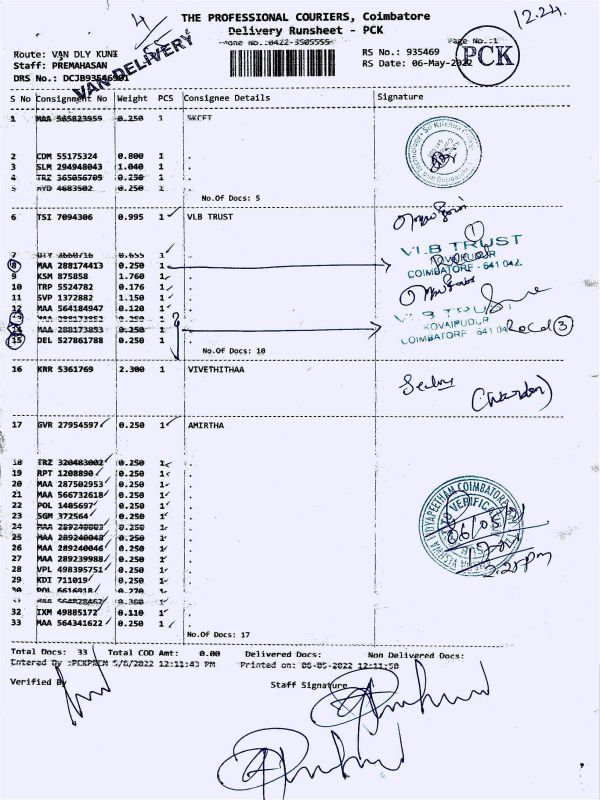 12.24
THE PROFESSIONAL COURIERS, Coimbatore
Delivery Runsheet - PCK
Phone No.:0422-3505555
Page No.:1
Route: VAN DLY KUNI
Staff: PREMAHASAN
VAN DELIVERY
RS No.: 935469
RS Date: 06-May-2022
PCK
S No Consignment No Weight PCS Consignee Details Signature
1 MAA 565823959 0.250 1 SKCET
2 CDM 55175324 0.800 1 .
3 SLM 294948043 1.040 1 .
4 TRZ 365056705 0.250 1 .
5 HYD 4683502 0.250 1 .
No.Of Docs: 5
6 TSI 7094306 0.995 1 VLB TRUST
VLB TRUST
KOVAIPUDUR
COIMBATORE - 641 042.
7 0.655 1
8 MAA 288174413 0.250 1 .
9 KSM 875858 1.760 1 .
10 TRP 5524782 0.176 1 .
11 SVP 1372882 1.150 1 .
12 MAA 564184947 0.120 1 .
13 MAA 288173852 0.250 1 .
14 MAA 288173853 0.250 1 .
15 DEL 527861788 0.250 1 .
VLB TRUST
KOVAIPUDUR
COIMBATORE - 641 042
Recd 3
No.Of Docs: 10
16 KRR 5361769 2.300 1 VIVETHITHAA
(Warden)
17 GVR 27954597 0.250 1 AMIRTHA
18 TRZ 320483002 0.250 1 .
19 RPT 1208890 0.250 1 .
20 MAA 287502953 0.250 1 .
21 MAA 566732618 0.250 1 .
22 POL 1485697 0.250 1 .
23 SGM 372564 0.250 1 .
24 MAA 0.250 1 .
25 MAA 289240048 0.250 1 .
26 MAA 289240046 0.250 1 .
27 MAA 289239988 0.250 1 .
28 VPL 498395751 0.250 1 .
29 KDI 711019 0.250 1 .
30 POL 6616918 0.270 1 .
31 0.360 1 .
32 IXM 49885172 0.110 1 .
33 MAA 564341622 0.250 1 .
No.Of Docs: 17
Total Docs: 33 Total COD Amt: 0.00 Delivered Docs: Non Delivered Docs:
Entered By :PCKPREM 5/6/2022 12:11:43 PM Printed on: 06-05-2022 12:11:50
Verified By Staff Signature